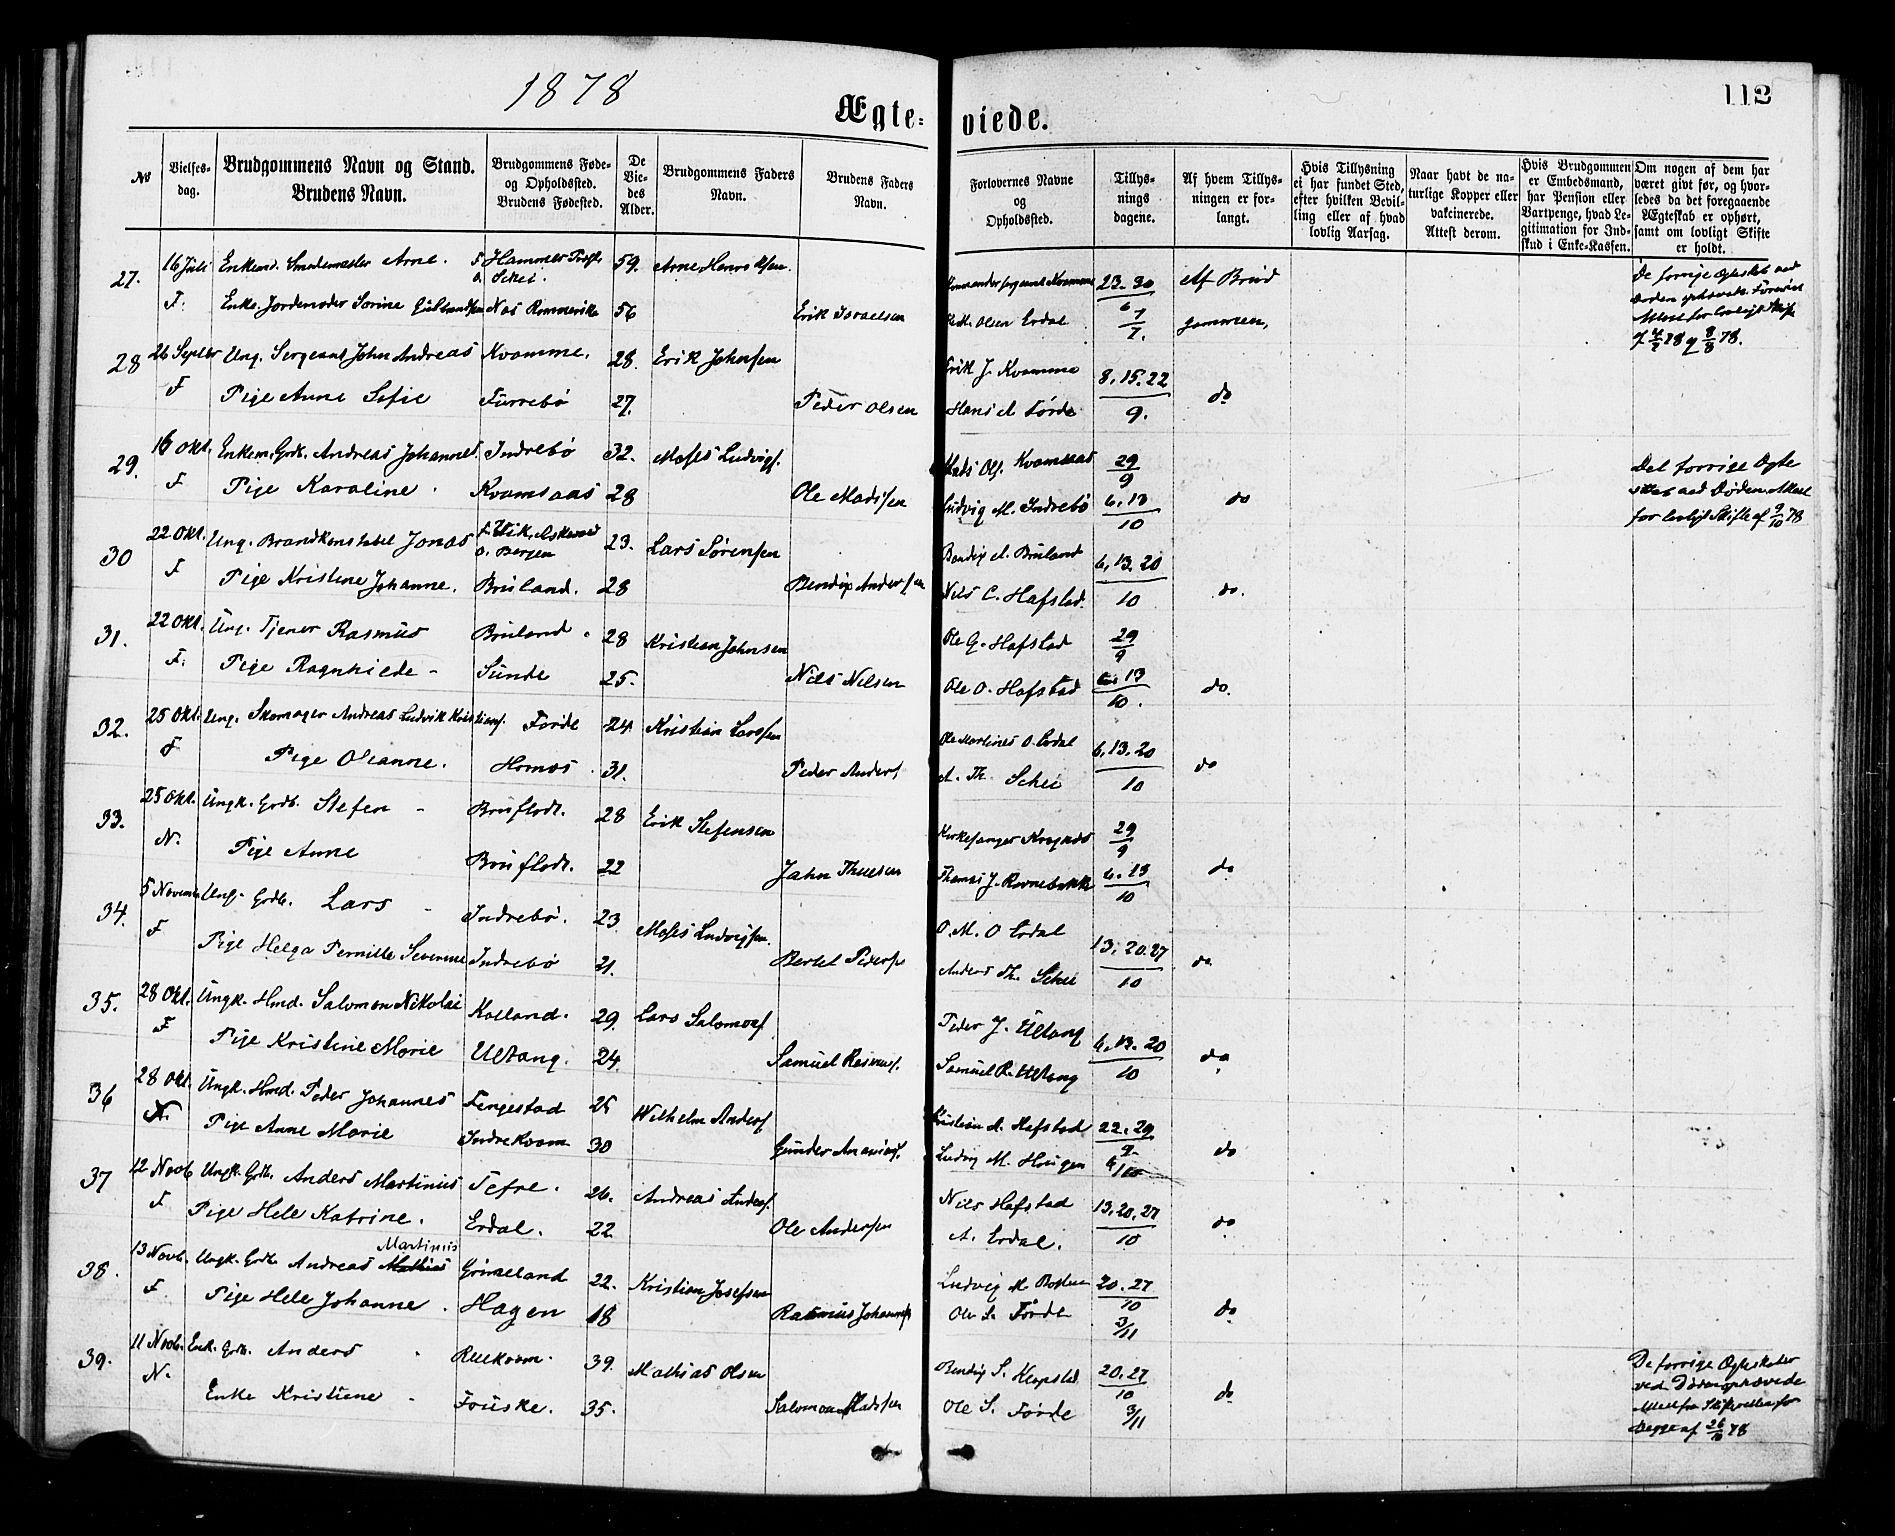 1878
112
Ægte- viede.
№
Vielses-dag.
Brudgommens Navn og Stand. Brudens Navn.
Brudgommens Føde- og Opholdssted. Brudens Fødested.
De Vie-des Alder.
Brudgommens Faders Navn.
Brudens Faders Navn.
Forlovernes Navne og Opholdssted.
Tillys-nings dagene.
Af hvem Tillys-ningen er for-langt.
Hvis Tillysning ei har fundet Sted, efter hvilken Bevil-ling eller af hvad lovlig Aarsag.
Naar havt de na-turlige Kopper eller vakcinerede. Attest derom.
Hvis Brudgommen er Embedsmand, har Pension eller Vartpenge, hvad Le-gitimation for Ind-skud i Enke-Kassen.
Om nogen af dem har været givt før, og hvor-ledes da det foregaaende Ægteskab er ophørt, samt om lovligt Skifte er holdt.
27. 16 Juli Enkem. Smedemester Arne. F. Hammer o. Schei. 59. Arne Hansen. 23. 30 Af Brud
F. Enke Jordemoder Sorine Nos Romerike 56 Erik Israelsen Olsen Erdal 6 7 7. gommen,
28 26 Septbr Ung. Sergeant John Andreas Kvamme. 28. Erik Johnsen Erik J. Kvamme 8, 15. 22
F Pige Anne Sofie Furrebø 27. Peder Olsen Hans A Førde 9. do
29. 16 Okt. Enkem. Grdb. Andreas Johannes Indrebø 32. Moses Ludvigs. Mads Ols. Kvamsaas 29 9 Det forrige Ægte
F Pige Karoline. Kvamsaas 28 Ole Madssen Ludvig M. Indrebø 6, 13 10 do skab ved Døden. Attest for lovligt Skifte af 9/10 78
30 22 Okt. Ung. Brandkonstabel Jonas F. Vik, Askvold o. Bergen 23. Lars Sørensen Bendix A. Bruland 6, 13. 20
F Pige Kristine Johanne. Bruland. 28 Bendix Andersen Nils C. Hafstad. 10 do.
31. 22 Okt. Ung. Tjener Rasmus Bruland 28 Kristian Johnsen Ole G. Hafstad 29 9
F. Pige Ragnhilde Sunde 25. Nils Nilsen Ole O. Hafstad 6. 13 10. do.
32. 25 Okt. Ung. Skomager Andreas Ludvik Kristians. Førde 24. Kristian Larssen Ole Martines O. Erdal 6, 13. 20
F Pige Olianne. Hornæs 31. Peder Anders. A. Th. Schei 10 do
33. 25 Okt. Ungk. Grdb. Stefen Bruflodt. 28 Erik Stefensen Kirkesanger Krognæs 29 9
N. Pige Anne Bruflodt. 22 John Thuesen Thomas J. Rovnebakk 6. 13 10 do
34. 5 Novembr Ung. Grdb. Lars Indrebø. 23 Moses Ludvigsen. O. M. O Erdal 13, 20. 27
F Pige Helga Pernille Severine Indrebø 21. Bertel Peders. Anders Th. Schei 10 do
35. 28 Okt. Ungk. Hmd. Salomon Nikolai Kalland. 29. Lars Salomons. Peder J. Ultang 6. 13. 20
F Pige Kristine Marie Ultang. 24. Samuel Rasmus. Samuel R. Ultang 10 do
36 28 Okt. Ungk. Hmd. Peder Johannes Fengestad 25 Wilhelm Anders. Kristian A. Hafstad 22. 29
N. Pige Anne Marie Indre Kvam 30 Gunder Ananias. Ludvig M. Haugen 9 6/10 do
37 12 Novb Ungk. Grdb. Anders Martinus Tefre. 26. Andreas Anders. Nils Hafstad 13, 20, 27
F Pige Hele Katrine. Erdal. 22 Ole Andersen A. Erdal. 10 do
38. 13 Novb. Ungk. Grdb. Andreas Martinus Grimeland 22. Kristian Josefsen Ludvig M Botnen 20. 27
F Pige Hele Johanne. Hagen 18 Rasmus Johanns. Ole S. Førde 10 3/11 do
39. 11 Novb. Enk. Grdb. Anders 39. Mathias Olsen Bendix S. 20. 27 De forrige Ægteskaber
N. Enke Kristiane Fouske. 35. Salomon Madssen Ole S. Førde 10 3/11 do ved Døden ophævede
Begge af 26/10 78